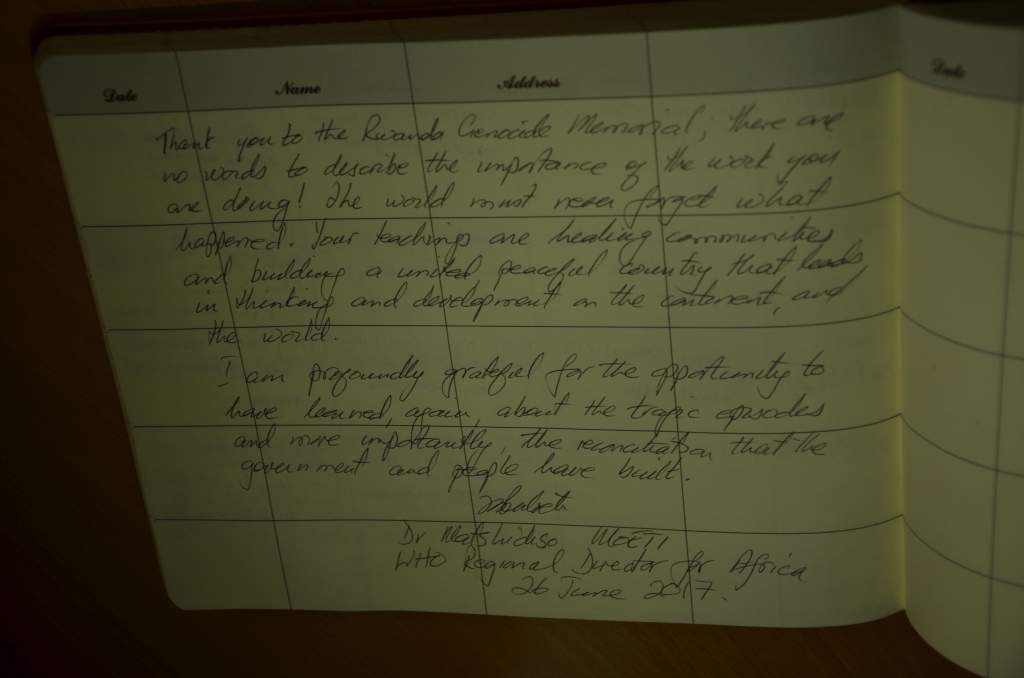 Date Name Address Date
Thank you to the Rwanda Genocide Memorial, there are
no words to describe the importance of the work you
are doing! The world must never forget what
happened. Your teachings are healing communities
and building a united peaceful country that leads
in thinking and development on the continent, and
the world.
I am profoundly grateful for the opportunity to
have learned, again, about the tragic episodes
and more importantly, the reconciliation that the
government and people have built.
Dr Matshidiso MOETI
WHO Regional Director for Africa
26 June 2017.